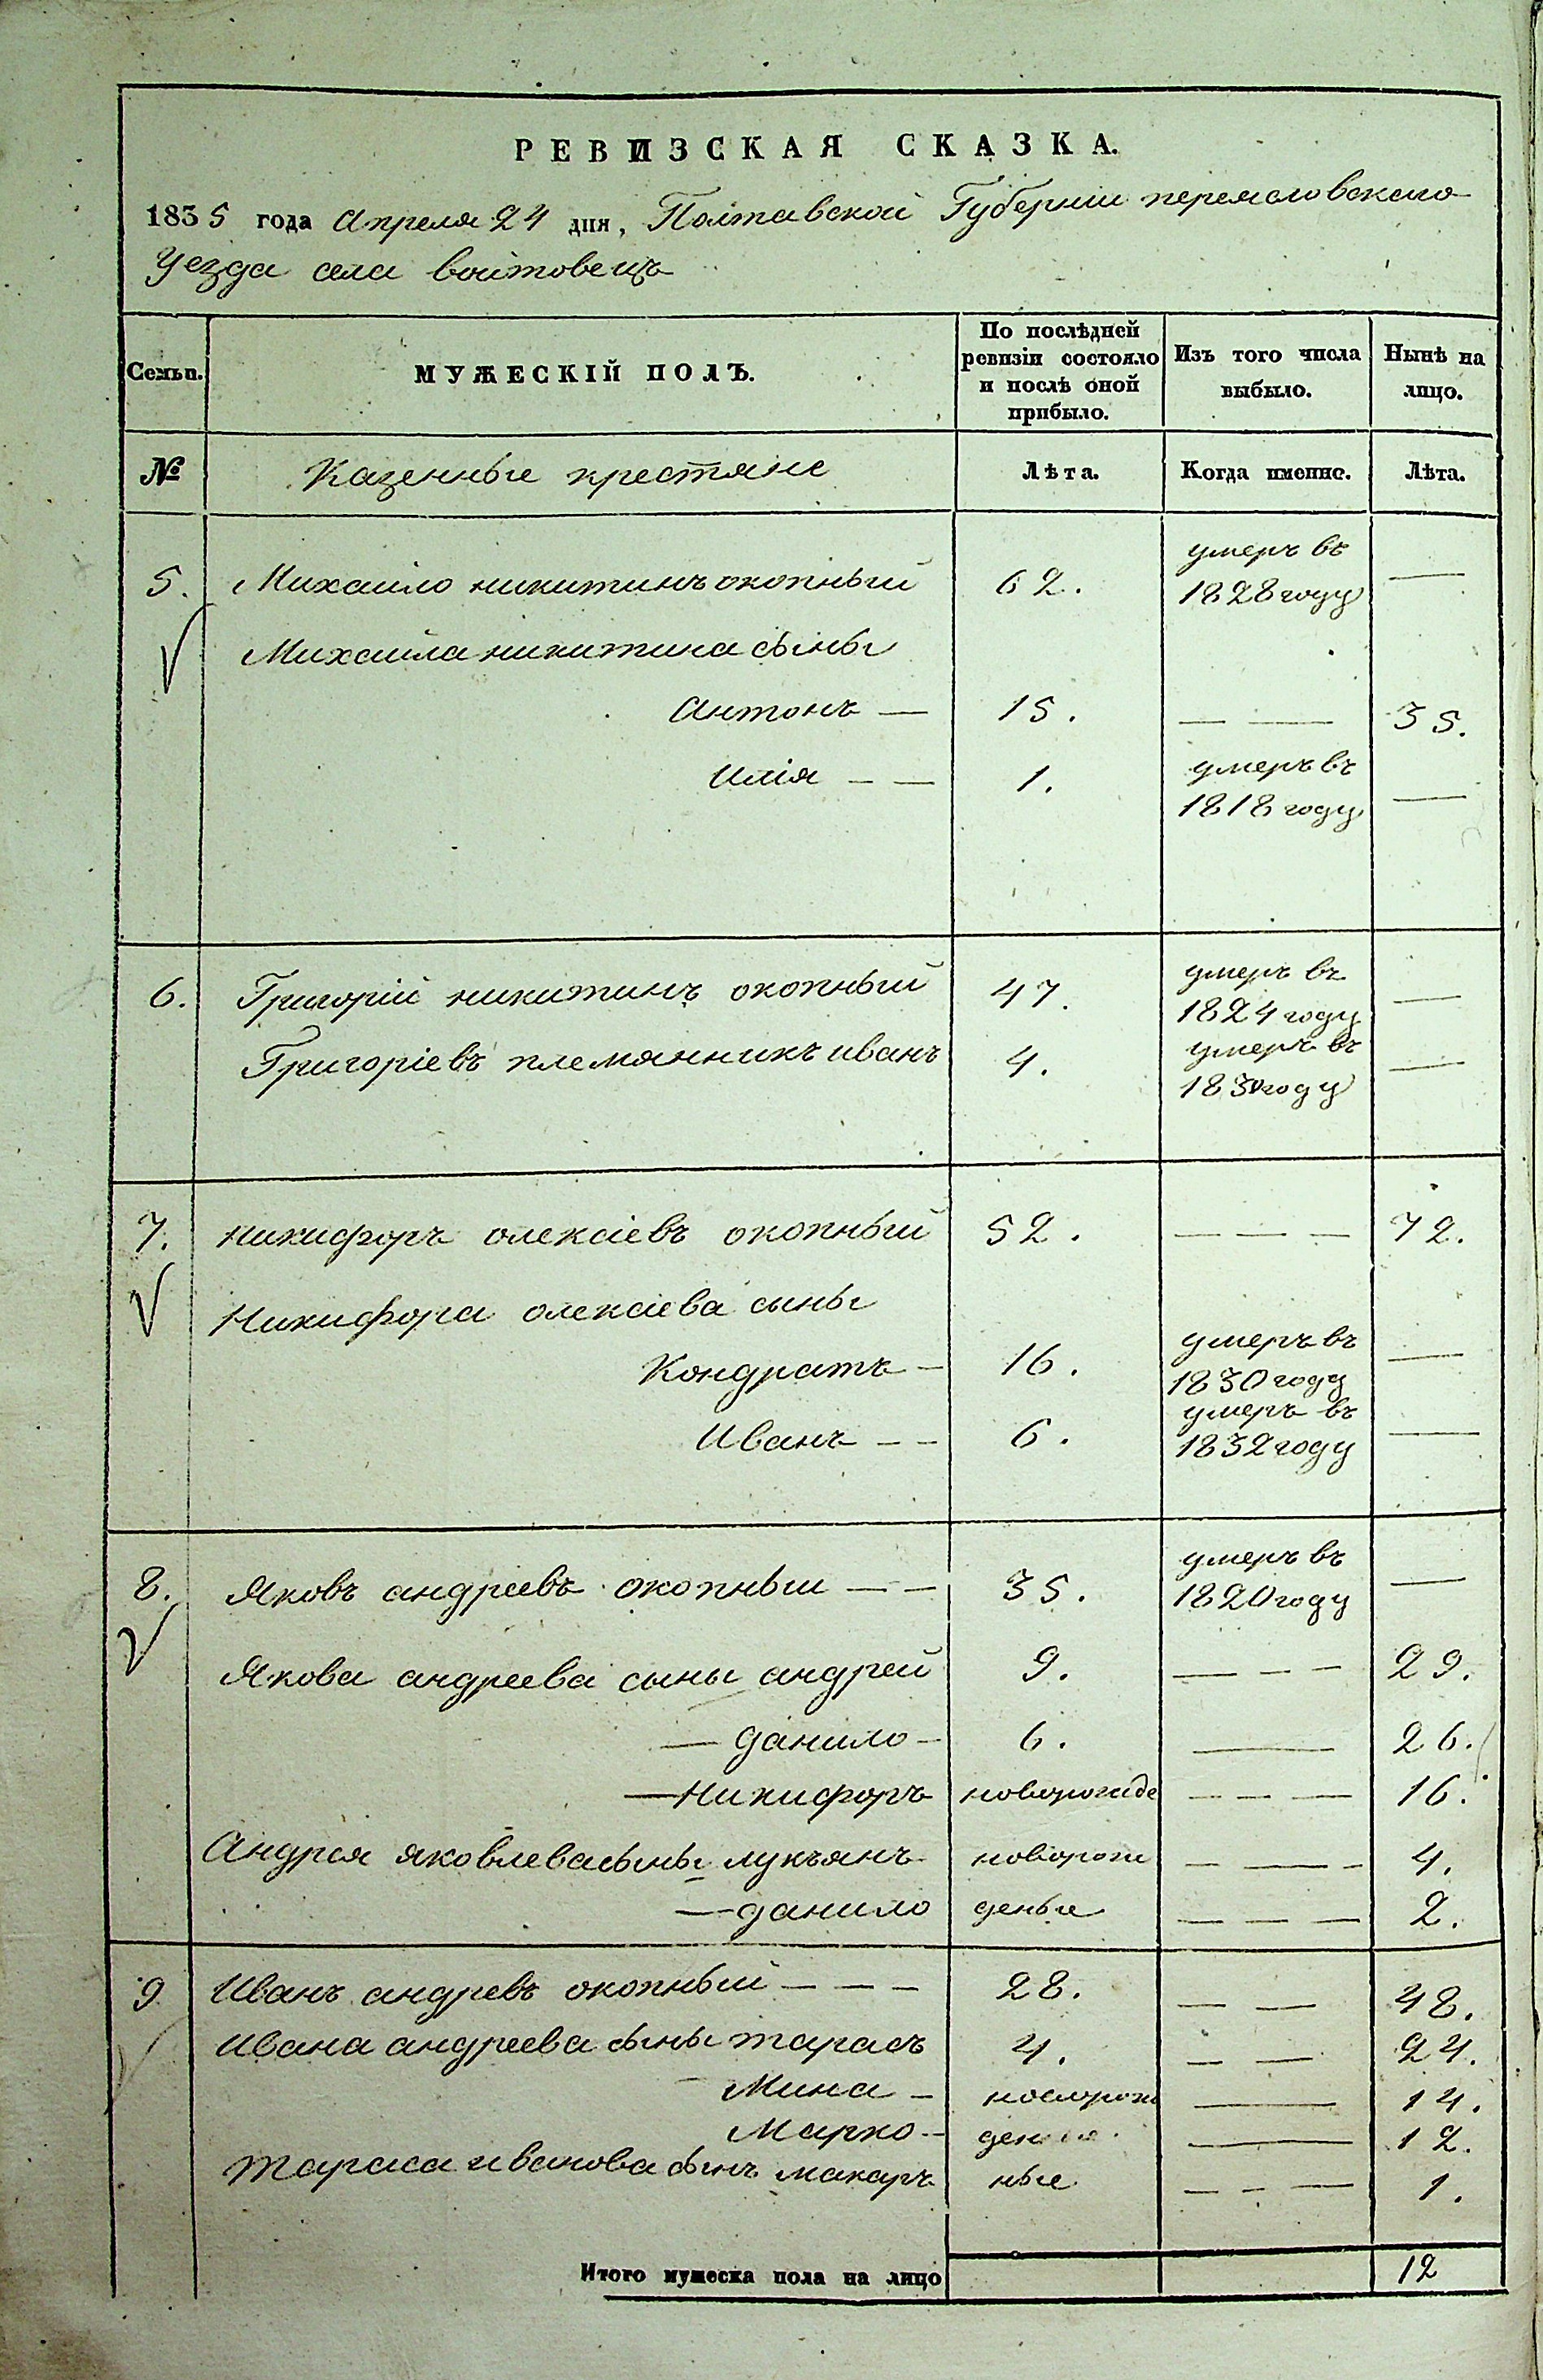 РЕВИЗСКАЯ СКАЗКА.
1835 года Апреля 24 дня, Полтавской Губернии переясловского
Уезда села войтовецъ
Семьи.
МУЖЕСКІЙ ПОЛЪ.
По послѣдней ревизіи состояло и послѣ оной прибыло.
Изъ того числа выбыло.
Нынѣ на лицо.
№ Казенные крестяне Лѣта. Когда именно. Лѣта.
5. Михайло никитинъ окопный 62. умеръ въ 1828 году —
Михайла никитина сыны
Антонъ — 15. — — 35.
Илія — — 1. умеръ въ 1818 году —
6. Григорій никитинъ окопный 47. умеръ въ 1824 году —
Григоріевъ племянникъ иванъ 4. умеръ въ 1830 году —
7. никифоръ олексіевъ окопный 52. — — — 72.
Никифора олексіева сыны
Кондратъ — 16. умеръ въ 1830 году —
Иванъ — — 6. умеръ въ 1832 году —
8. Яковъ андреевъ окопный — — 35. умеръ въ 1820 году —
Якова андреева сыны андрей 9. — — — 29.
— данило — 6. — 26.
— Никифоръ новорожде — — — 16.
Андрея яковлева сыны лукъянъ новорож — — — 4.
— данило деные — — — 2.
9. Иванъ андревъ окопный — — — 28. — — 48.
Ивана андреева сыны тарасъ 4. — — 24.
Мина — новорож — 14.
Марко — ден — 12.
Тараса иванова сынъ макаръ ные — — — 1.
Итого мужеска пола на лицо 12